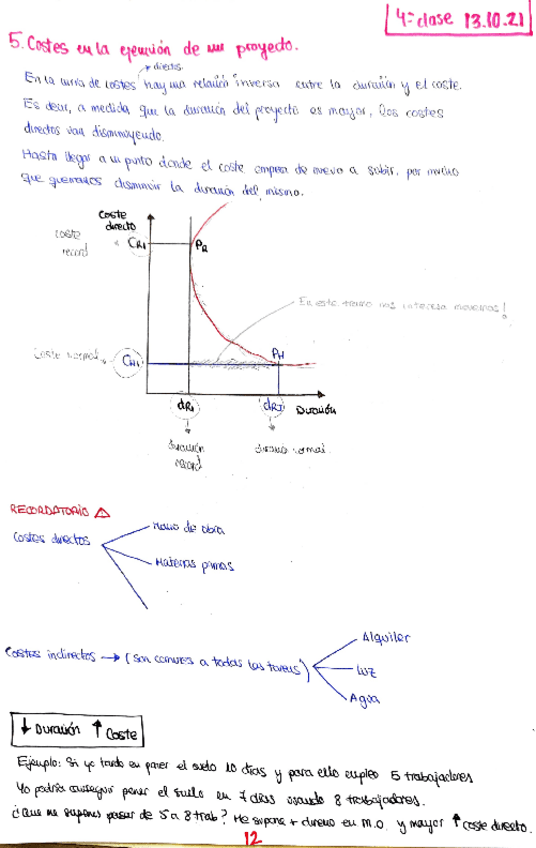 4ª clase 13.10.21
5. Costes en la ejecución de un proyecto.
directos
En la curva de costes hay una relación inversa entre la duración y el coste.
Es decir, a medida que la duración del proyecto es mayor, los costes
directos van disminuyendo.
Hasta llegar a un punto donde el coste empieza de nuevo a subir, por mucho
que queramos disminuir la duración del mismo.
Coste
directo
coste
record
CRi
PR
En este tramo nos interesa movernos!
Coste normal
CNi
PN
dRi
Duración
Duración
record
duración normal
RECORDATORIO
Costes directos
Mano de obra
Materias primas
Costes indirectos → (Son comunes a todas las tareas)
Alquiler
LUZ
Agua
↓ Duración ↑ Coste
Ejemplo: Si yo tardo en poner el suelo 10 días y para ello empleo 5 trabajadores
Yo podría conseguir poner el suelo en 7 días usando 8 trabajadores.
¿Que me supones pasar de 5 a 8 trab? Me supone + dinero en M.O. y mayor ↑ coste directo.
12